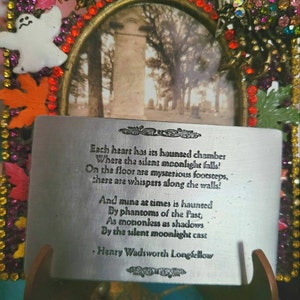 Each heart has its haunted chamber
Where the silent moonlight falls!
On the floor are mysterious footsteps,
there are whispers along the walls!
And mine at times is haunted
By phantoms of the Past,
As motionless as shadows
By the silent moonlight cast
- Henry Wadsworth Longfellow